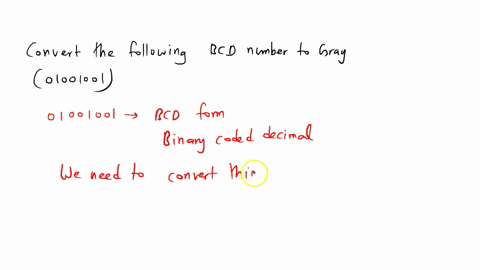 Convert the following BCD number to Gray
(01001001)
01001001 → BCD form
Binary coded decimal
We need to convert this